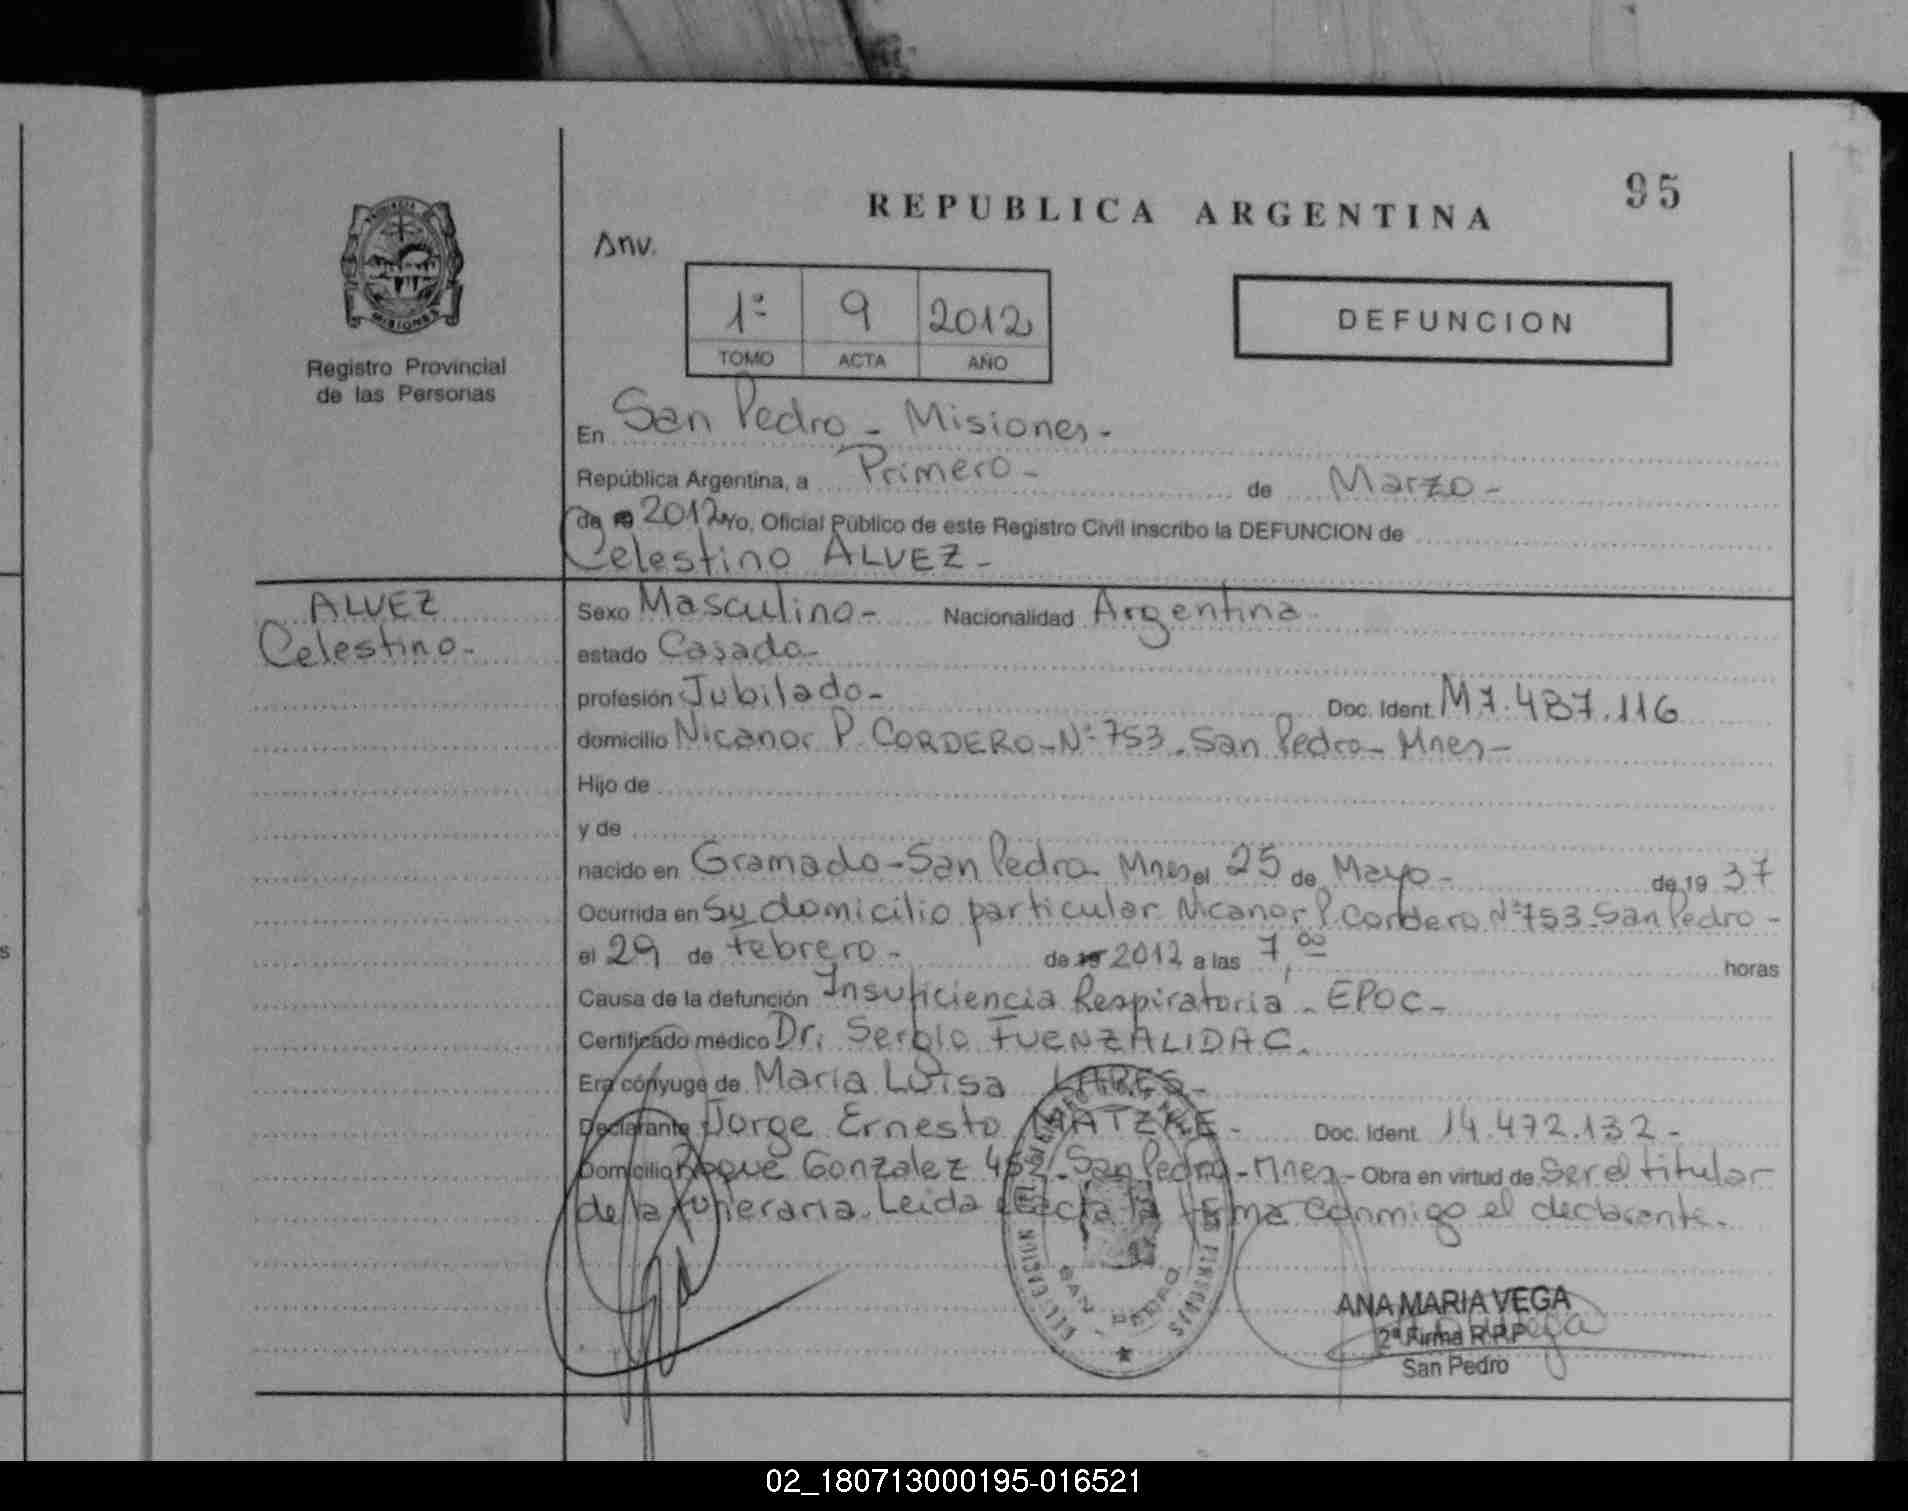 95
REPUBLICA ARGENTINA
Anv.
1º 9 2012
TOMO ACTA AÑO
DEFUNCION
PROVINCIA DE
MISIONES
Registro Provincial
de las Personas
En San Pedro - Misiones -
República Argentina, a Primero - de Marzo -
de 19 2012 Yo, Oficial Público de este Registro Civil inscribo la DEFUNCION de
Celestino ALVEZ -
ALVEZ
Celestino -
Sexo Masculino - Nacionalidad Argentina
estado Casado -
profesión Jubilado - Doc. Ident. M7.487.116
domicilio Nicanor P. CORDERO - Nº 753 - San Pedro - Mnes -
Hijo de
y de
nacido en Gramado - San Pedro - Mnes el 25 de Mayo - de 19 37
Ocurrida en Su domicilio particular Nicanor P. Cordero Nº 753 - San Pedro -
el 29 de febrero - de 19 2012 a las 7,00 horas
Causa de la defunción Insuficiencia Respiratoria - EPOC -
Certificado médico Dr. Sergio FUENZALIDA C.
Era cónyuge de Maria Luisa LARES -
Declarante Jorge Ernesto MATZKE - Doc. Ident. 14.472.132 -
Domicilio Roque Gonzalez 452 - San Pedro - Mnes - Obra en virtud de Ser el titular
de la funeraria. Leida el acta la firma conmigo el declarante.
SAN PEDRO
ANA MARIA VEGA
2ª Firma R.P.P
San Pedro
02_180713000195-016521